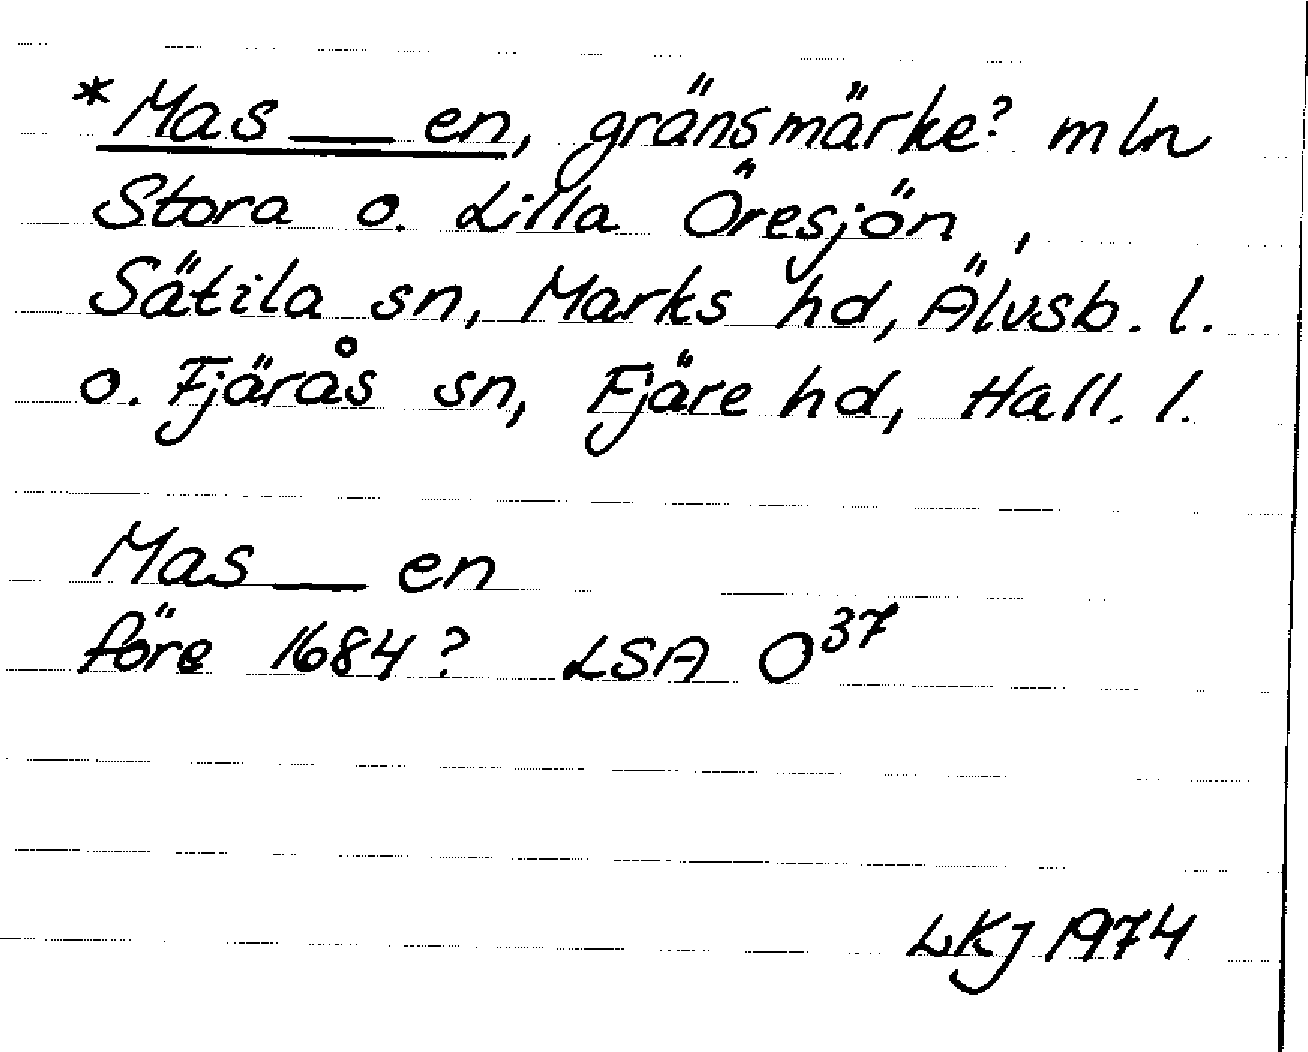 *Mas — en, gränsmärke? mln
Stora o. Lilla Öresjön,
Sätila sn, Marks hd, Älvsb. l.
o. Fjärås sn, Fjäre hd, Hall. l.
Mas — en
före 1684? LSA O³⁷
LKJ 1974